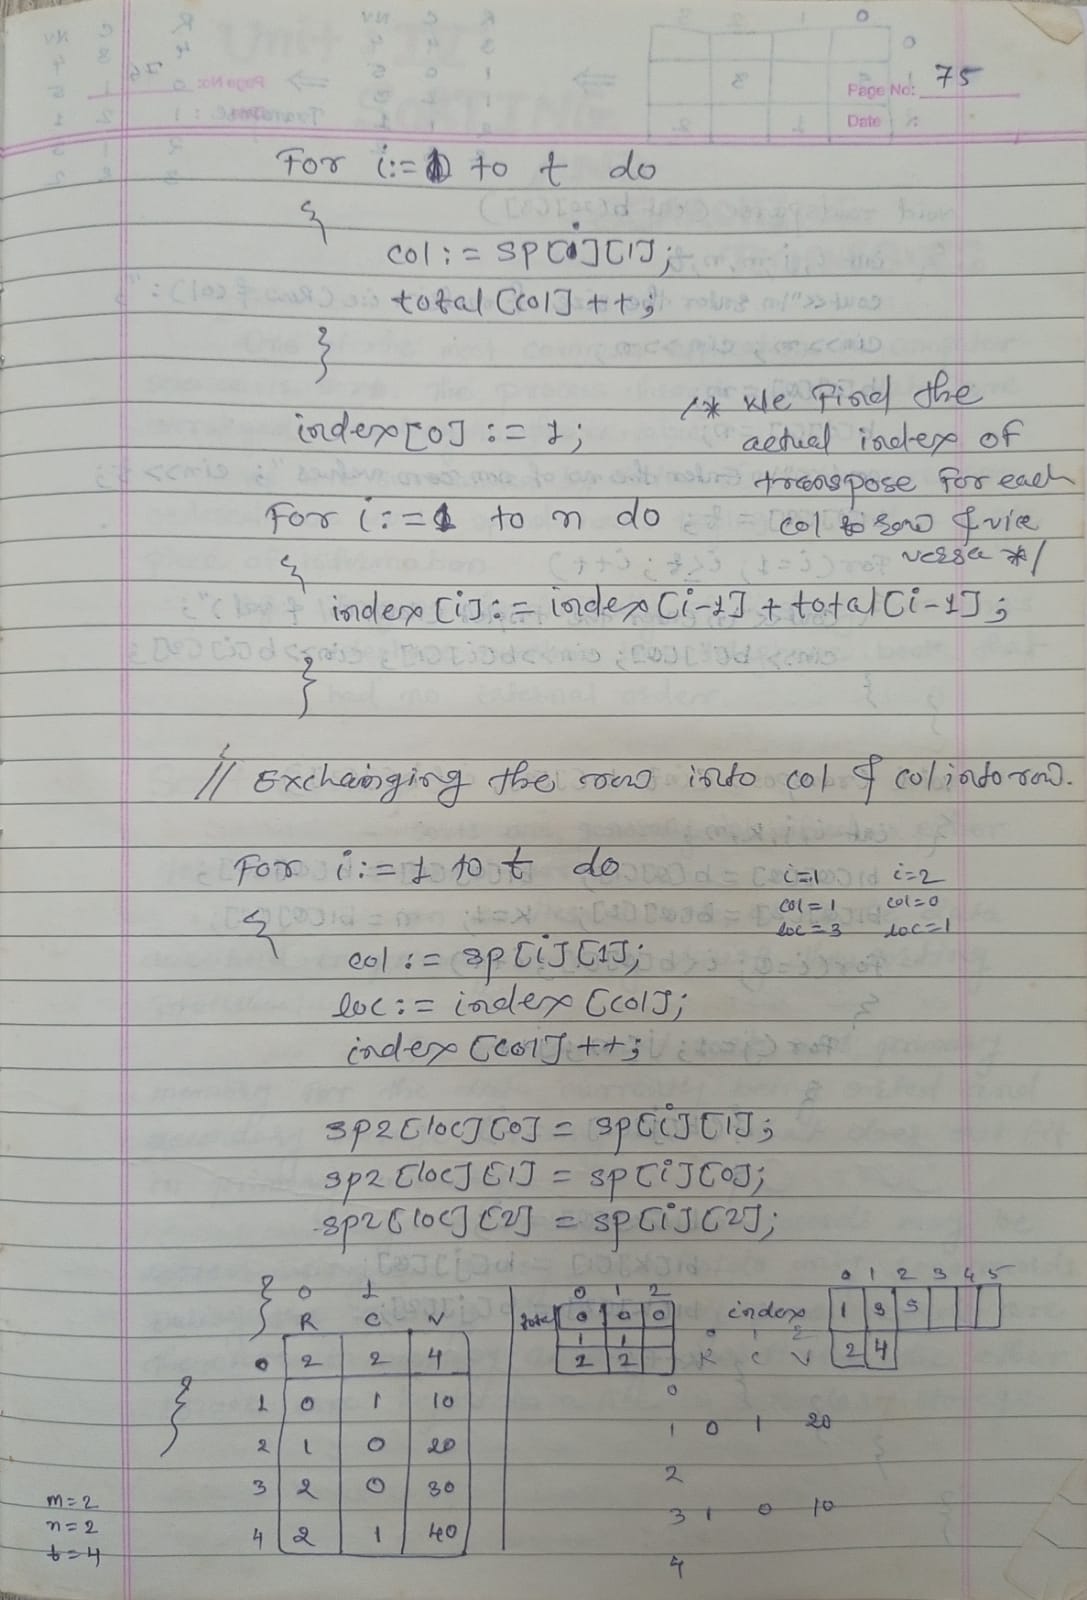 Page No: 75
Date
For i:=1 to t do
{
col := sp[i][1];
total[col]++;
}
/* We Find the
index[0] := 1;
actual index of
transpose For each
For i:=1 to n do
col to row & vice
versa */
{
index[i] := index[i-1] + total[i-1];
}
// Exchainging the row into col & col into row.
For i:=1 to t do
i=1 i=2
{
col=1 col=0
loc=3 loc=1
col := sp[i][1];
loc := index[col];
index[col]++;
sp2[loc][0] = sp[i][1];
sp2[loc][1] = sp[i][0];
sp2[loc][2] = sp[i][2];
}
0 1
R C V
0 2 2 4
1 0 1 10
2 1 0 20
3 2 0 30
4 2 1 40
}
m=2
n=2
t=4
0 1 2
total 0 0 0
1 1
2 2
0 1 2 3 4 5
index 1 3 5
2 4
0 1 2
R C V
0
1 0 1 20
2
3 1 0 10
4